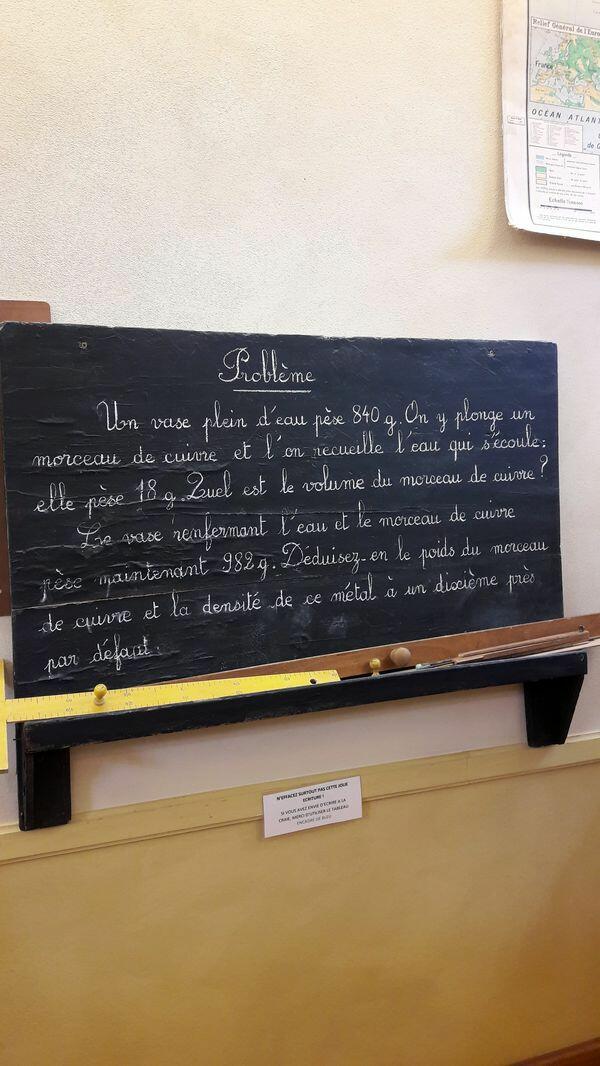 Relief Général de l'Euro
France
OCÉAN ATLANT
Légende
Problème
Un vase plein d'eau pèse 840 g. On y plonge un
morceau de cuivre et l'on recueille l'eau qui s'écoule:
elle pèse 18 g. Quel est le volume du morceau de cuivre ?
Le vase renfermant l'eau et le morceau de cuivre
pèse maintenant 982 g. Déduisez-en le poids du morceau
de cuivre et la densité de ce métal à un dixième près
par défaut.
N'EFFACEZ SURTOUT PAS CETTE JOLIE
ECRITURE !
SI VOUS AVEZ ENVIE D'ECRIRE A LA
CRAIE, MERCI D'UTILISER LE TABLEAU
ENCADRE DE BLEU